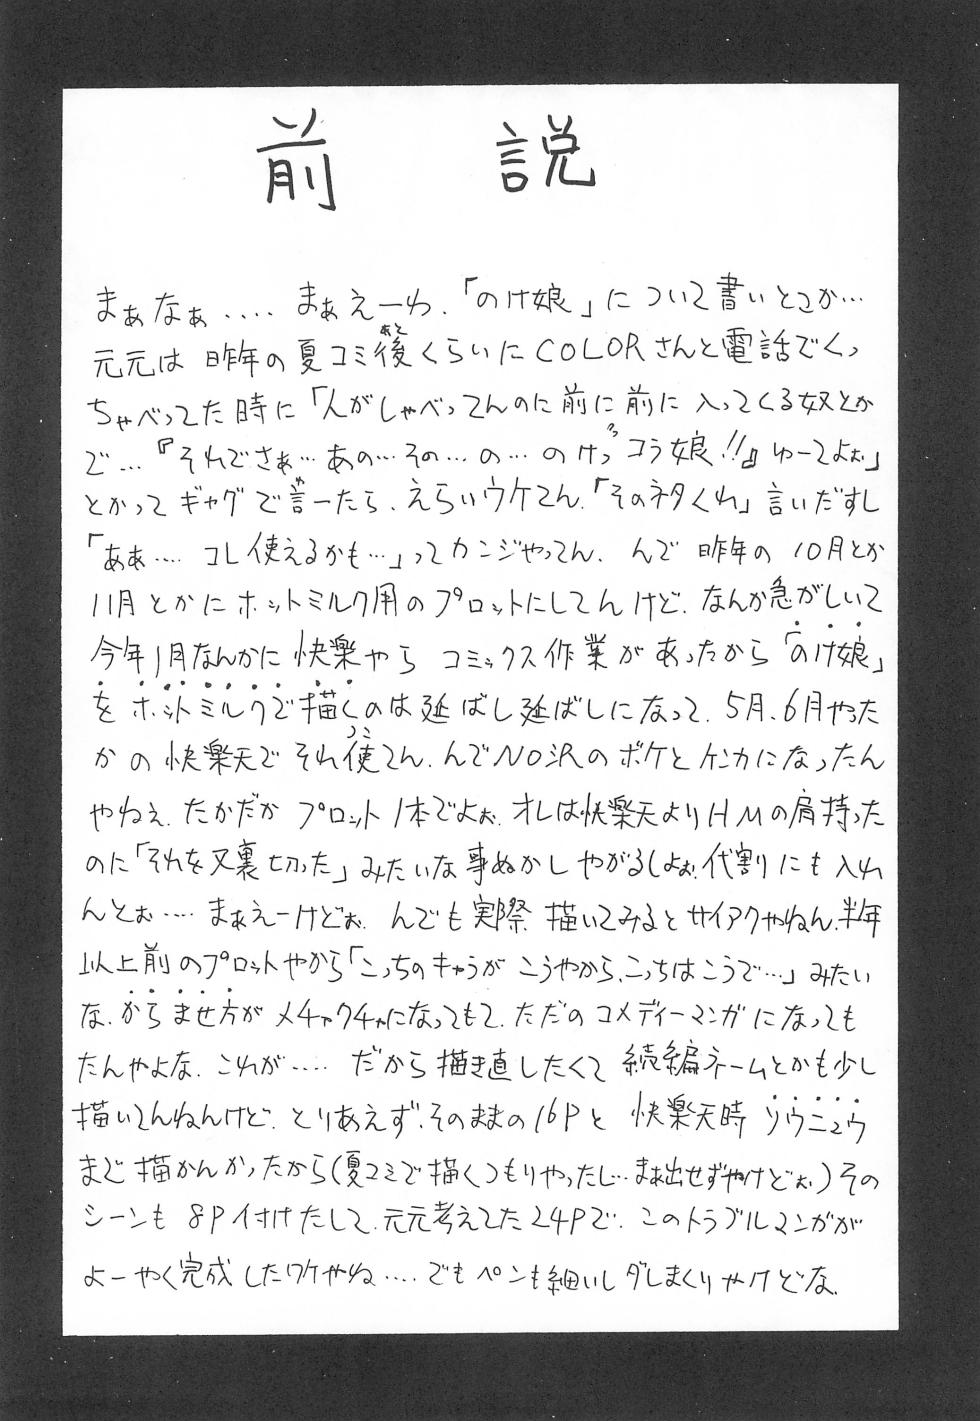 前説
まぁなぁ‥‥ まぁえーわ.「のけ娘」について書いとこか…
元元は昨年の夏コミ後くらいにCOLORさんと電話でくっ
あと
ちゃべってた時に「人がしゃべってんのに前に前に入ってくる奴とか
で…『それでさぁ…あの…その…の…のけっコラ娘!!』ゆーてよぉ」
とかってギャグで言ーたら、えらいウケてん.「そのネタくれ」言いだすし
「ああ‥‥ コレ使えるかも…」ってカンジやってん. んで昨年の10月とか
11月とかにホットミルク用のプロットにしてんけど. なんか急がしいて
今年1月なんかに快楽やら コミックス作業があったから「のけ娘」
をホットミルクで描くのは延ばし延ばしになって. 5月、6月やった
かの快楽天でそれ使てん. んでNO沢のボケとケンカになったん
つこ
やねぇ. たかだかプロット1本でよぉ. オレは快楽天よりHMの肩持った
のに「それを又裏切った」みたいな事ぬかしやがるしよぉ. 代割りにも入れ
んとぉ‥‥ まぁえーけどぉ. んでも実際描いてみるとサイアクやねん. 半年
以上前のプロットやから「こっちのキャラがこうやから、こっちはこうで…」みたい
な. からませ方がメチャクチャになってもて. ただのコメディーマンガになっても
たんやよな. これが‥‥ だから描き直したくて続編ネームとかも少し
描いてんねんけど. とりあえず、そのままの16Pと快楽天時ソウニュウ
まで描かんかったから(夏コミで描くつもりやったし…まぁ出せずやけどぉ)その
シーンも8P付けたして. 元元考えてた24Pで. このトラブルマンガが
よーやく完成したワケやね‥‥でもペンも細いしダしまくりやけどな.